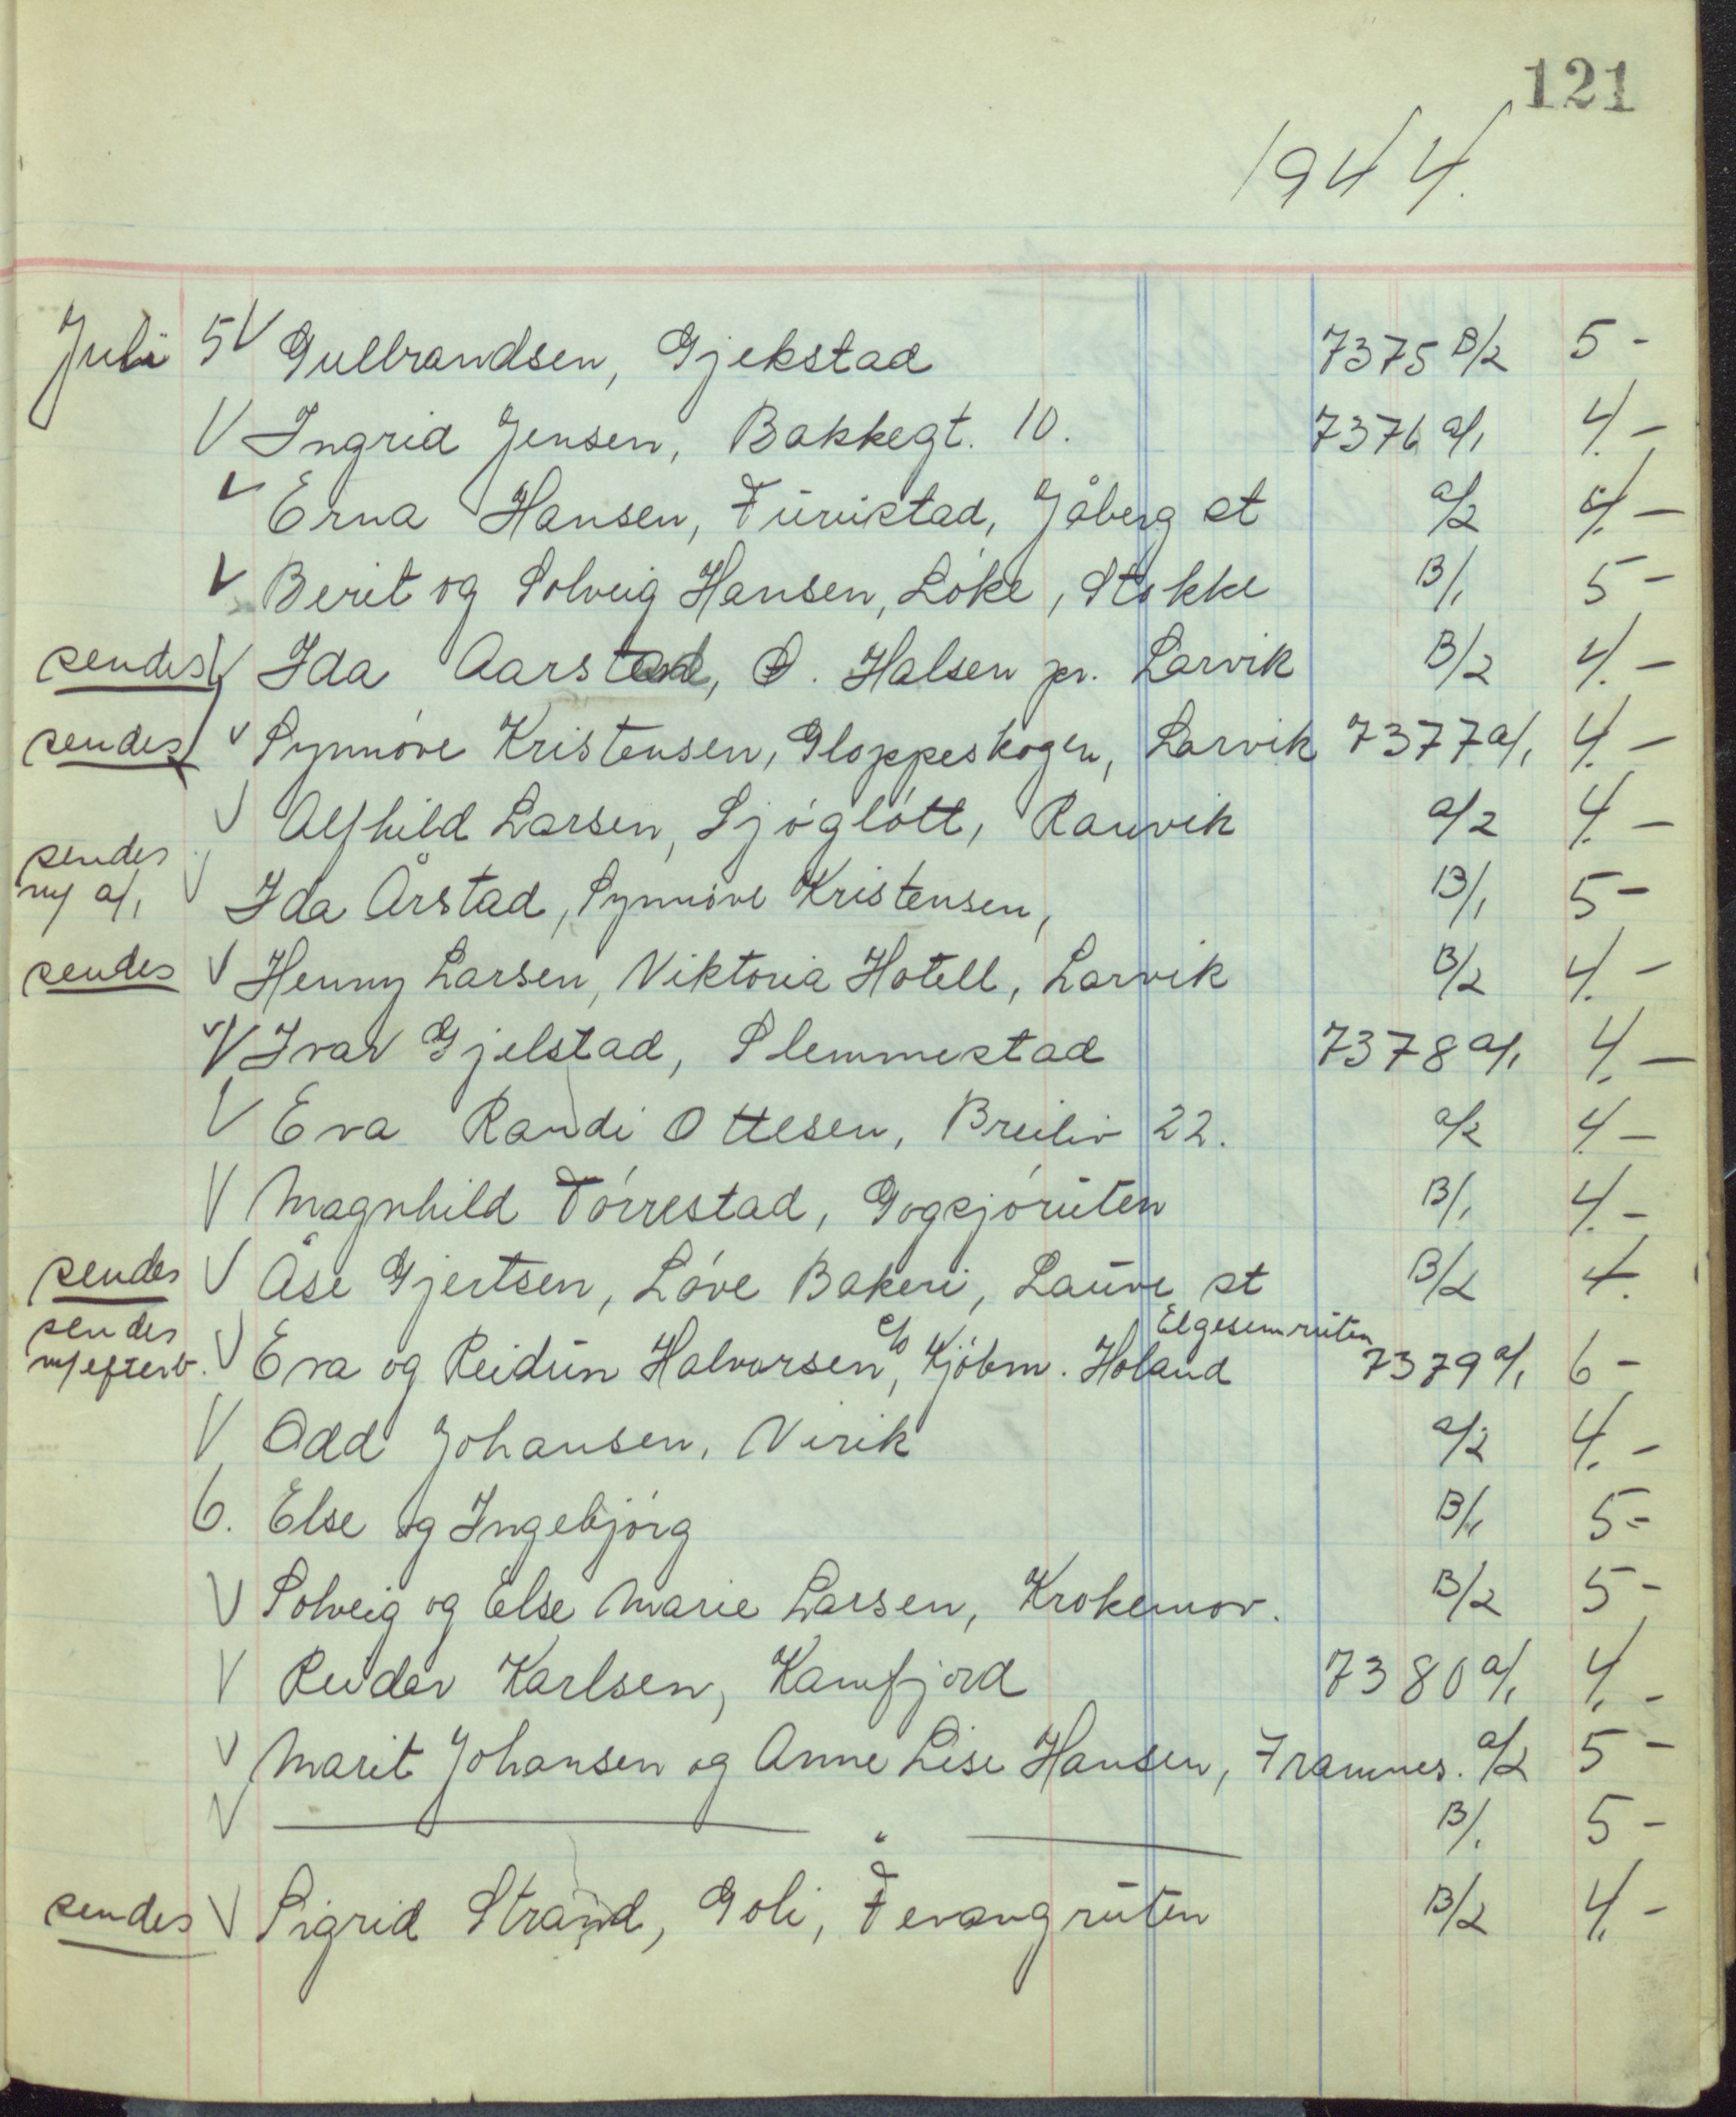 121
1944.
Juli 5 V Gulbrandsen, Gjekstad 7375 B/2 5 -
V Ingrid Jensen, Bakkegt. 10. 7376 a/1 4. -
V Erna Hansen, Furustad, Jåberg st a/2 4. -
V Berit og Solveig Hansen, Løke, Stokke B/1 5 -
sendes V Ida Aarstad, Ø. Halsen pr. Larvik B/2 4. -
sendes V Synnøve Kristensen, Gloppeskogen, Larvik 7377 a/1 4. -
V Alfhild Larsen, Sjøgløtt, Ranvik a/2 4. -
sendes
m/ a/1 V Ida Årstad, Synnøve Kristensen, B/1 5 -
sendes V Henny Larsen, Viktoria Hotell, Larvik B/2 4. -
V Ivar Gjelstad, Slemmestad 7378 a/1 4. -
V Eva Randi Ottesen, Breiliv 22. a/2 4. -
V Magnhild Tørrestad, Gogsjøruten B/1 4. -
sendes V Åse Gjertsen, Løve Bakeri, Lauve st B/2 4.
Elgesemruten
sendes
m/efterb. V Eva og Reidun Halvorsen, c/o Kjøbm. Holand 7379 a/1 6 -
V Odd Johansen, Virik a/2 4. -
6. Else og Ingebjørg B/1 5 -
V Solveig og Else Marie Larsen, Krokemov. B/2 5 -
V Reidar Karlsen, Kamfjord 7380 a/1 4. -
V Marit Johansen og Anne Lise Hansen, Framnes. a/2 5 -
V — " — B/1 5 -
sendes V Sigrid Strand, Goli, Fevangruten B/2 4. -